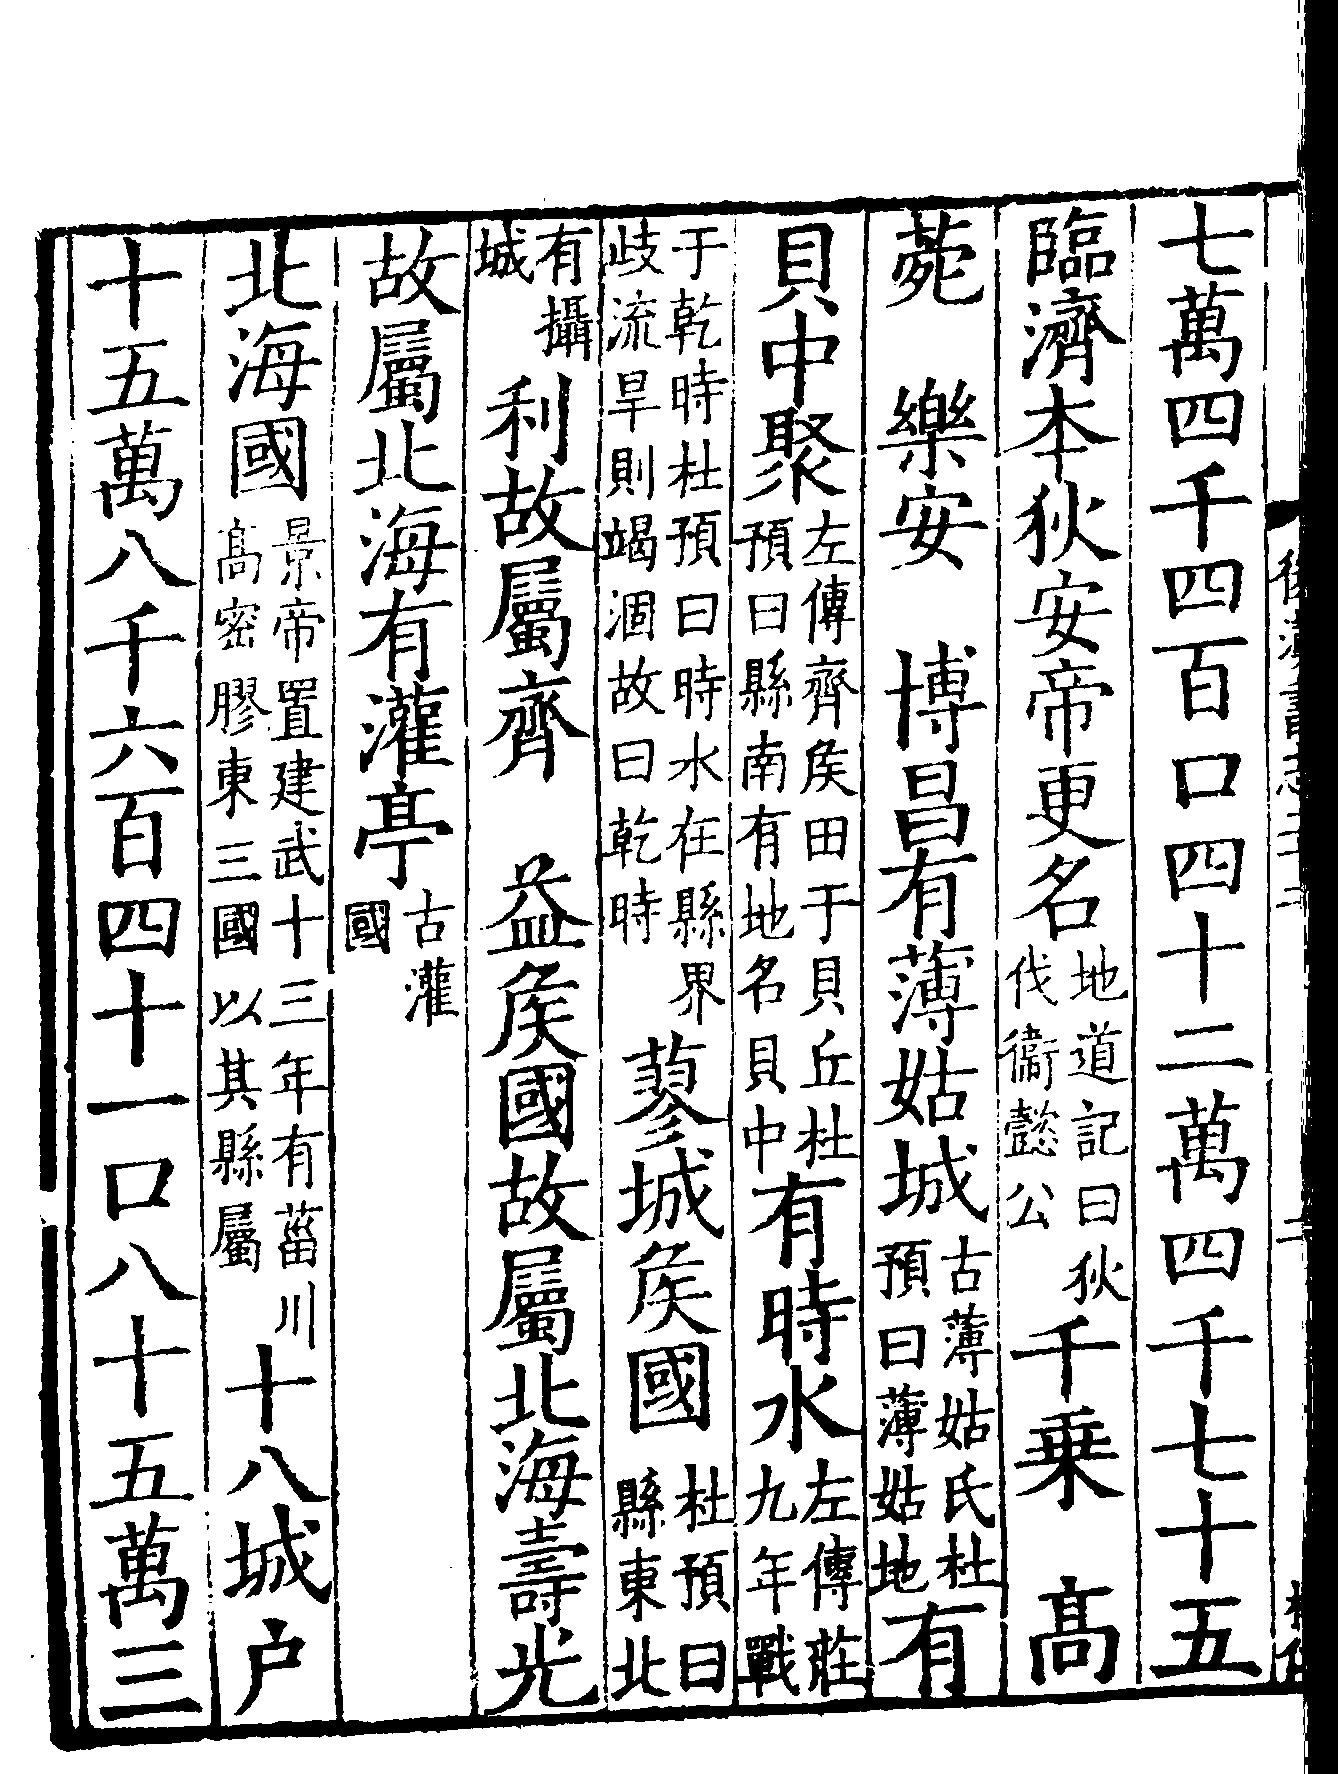 七萬四千四百口四十二萬四千七十五
臨濟本狄安帝更名地道記曰狄伐衞懿公千乗 髙
菀 樂安 博昌有薄姑城古薄姑氏杜預曰薄姑地有
貝中聚左傳齊矦田于貝丘杜預曰縣南有地名貝中有時水左傳莊九年戰
于乾時杜預曰時水在縣界歧流旱則竭涸故曰乾時 蓼城矦國杜預曰縣東北
有攝城 利故屬齊 益矦國故屬北海壽光
故屬北海有灌亭古灌國
北海國景帝置建武十三年有菑川髙密膠東三國以其縣屬十八城户
十五萬八千六百四十一口八十五萬三